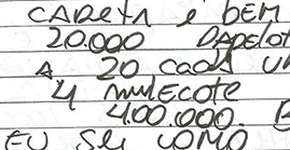 CARETA e BEM
20.000 PAPELOT
A 20 CADA U
4 MULECOTE
400.000. B
EU SEI COMO